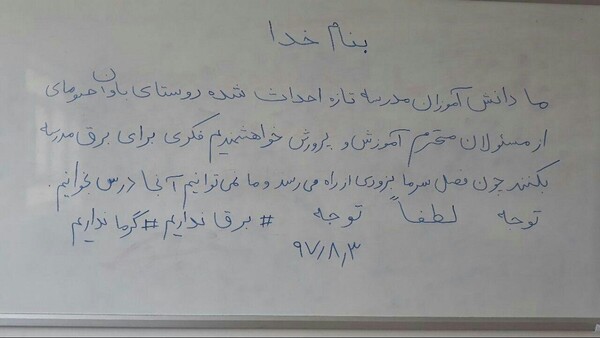 بنام خدا
ما دانش آموزان مدرسه تازه احداث شده روستای باوان
از مسئولان محترم آموزش و پرورش خواهشمندیم فکری برای برق مدرسه
بکنند چون فصل سرما بزودی از راه می رسد و ما نمی توانیم آنجا درس بخوانیم.
توجه لطفاً توجه #برق نداریم #گرما نداریم
۹۷٫۸٫۳